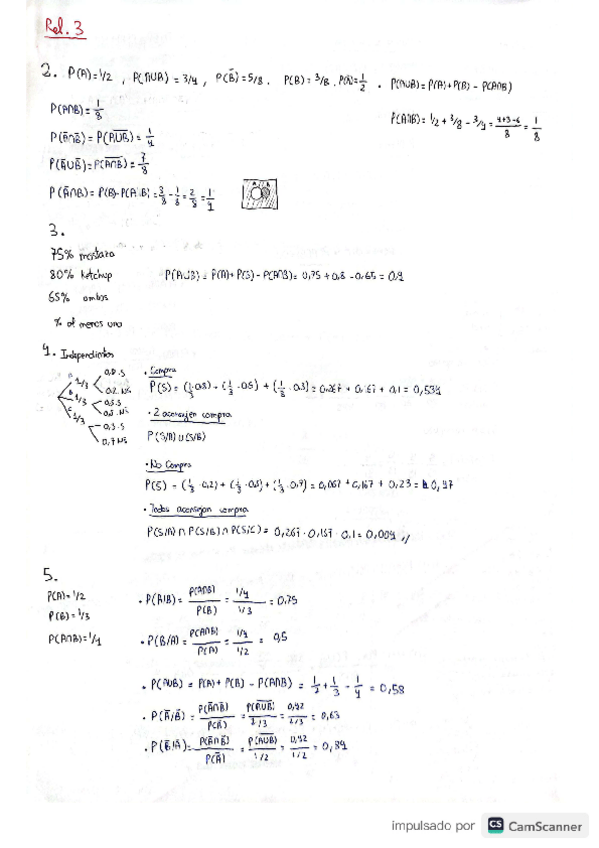 Rel. 3
2. P(A)=1/2, P(A∪B) = 3/4, P(B̄)=5/8. P(B)=3/8. P(Ā)=1/2 . P(A∪B)=P(A)+P(B) - P(A∩B)
P(A∩B)= 1/8
P(A∩B)= 1/2 + 3/8 - 3/4 = (4+3-6)/8 = 1/8
P(Ā∩B̄)= P(A̅∪̅B̅)= 1/4
P(Ā∪B̄)=P(A̅∩̅B̅)= 7/8
P(Ā∩B)= P(B)-P(A∩B)= 3/8 - 1/8 = 2/8 = 1/4
3.
75% mostaza
80% ketchup P(A∪B) = P(A)+P(B)-P(A∩B)= 0,75+0,8-0,65= 0,9
65% ambos
% al menos uno
4. Independientes
A 1/3 0,8 S
0,2 No
B 1/3 0,5 S
0,5 No
C 1/3 0,3 S
0,7 No
• Compra
P(S) = (1/3·0,8) + (1/3·0,5) + (1/3·0,3) = 0,267 + 0,167 + 0,1 = 0,534
• 2 aconsejen compra
P(S/A) ∪ (S/B)
• No Compra
P(S) = (1/3·0,2) + (1/3·0,5) + (1/3·0,7) = 0,067 + 0,167 + 0,23 = 0,47
• Todos aconsejan compra
P(S/A) ∩ P(S/B) ∩ P(S/C) = 0,267 · 0,167 · 0,1 = 0,004 //
5.
P(A)= 1/2
P(B)= 1/3
P(A∩B)= 1/4
• P(A/B)= P(A∩B)/P(B) = (1/4)/(1/3) = 0,75
• P(B/A)= P(A∩B)/P(A) = (1/4)/(1/2) = 0,5
• P(A∪B) = P(A)+P(B) - P(A∩B) = 1/2 + 1/3 - 1/4 = 0,58
• P(Ā/B̄)= P(Ā∩B̄)/P(B̄) = P(A̅∪̅B̅)/(2/3) = 0,42/(2/3) = 0,63
• P(B̄/Ā)= P(Ā∩B̄)/P(Ā) = P(A̅∪̅B̅)/(1/2) = 0,42/(1/2) = 0,84
impulsado por CS CamScanner